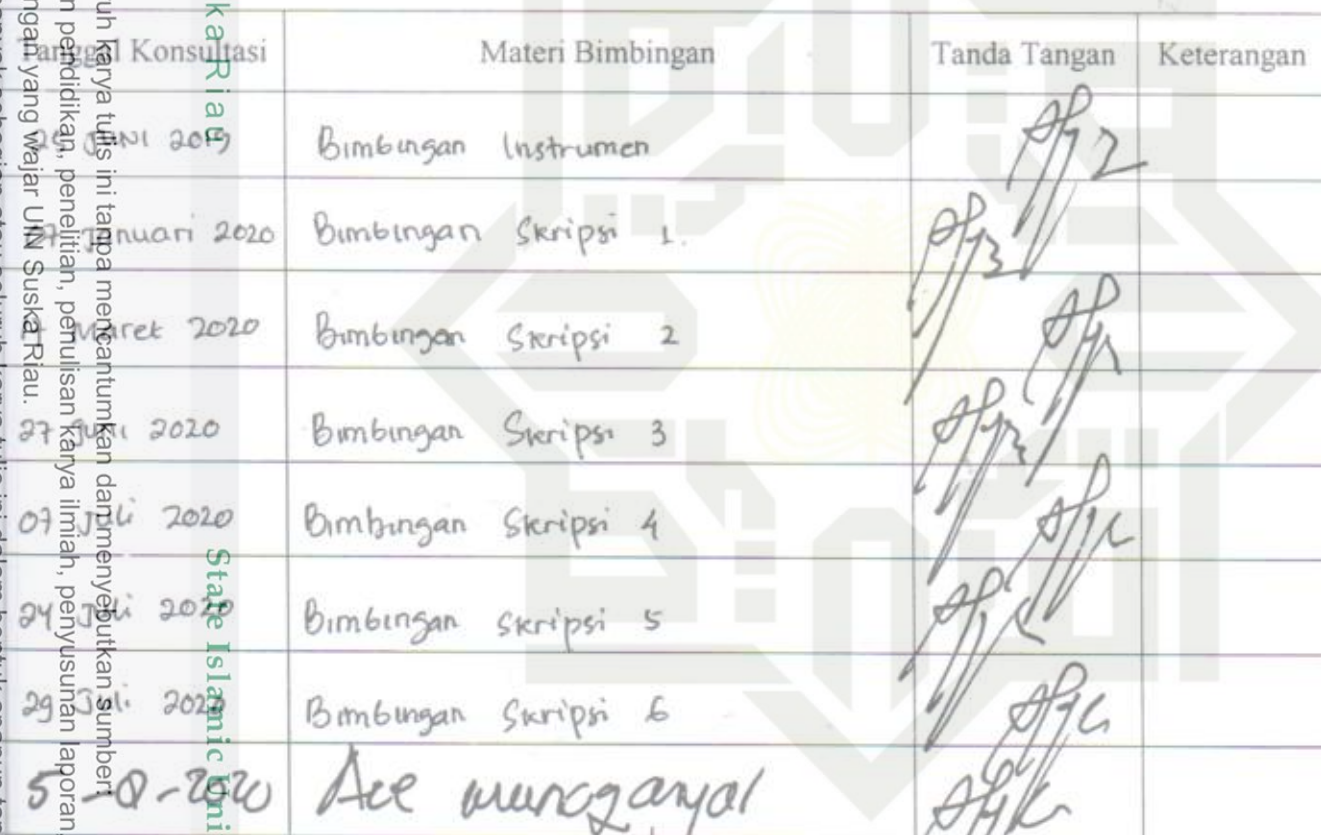 Tanggal Konsultasi Materi Bimbingan Tanda Tangan Keterangan
JUNI 2019 Bimbingan Instrumen
Januari 2020 Bimbingan Skripsi 1.
Maret 2020 Bimbingan Skripsi 2
27 2020 Bimbingan Skripsi 3
07 Juli 2020 Bimbingan Skripsi 4
24 Juli 2020 Bimbingan Skripsi 5
29 Juli 2020 Bimbingan Skripsi 6
5 2020 Acc
ka Riau
State Islamic Uni
uh karya tulis ini tanpa mencantumkan dan menyebutkan sumber:
n pendidikan, penelitian, penulisan karya ilmiah, penyusunan laporan,
ngan yang wajar UIN Suska Riau.